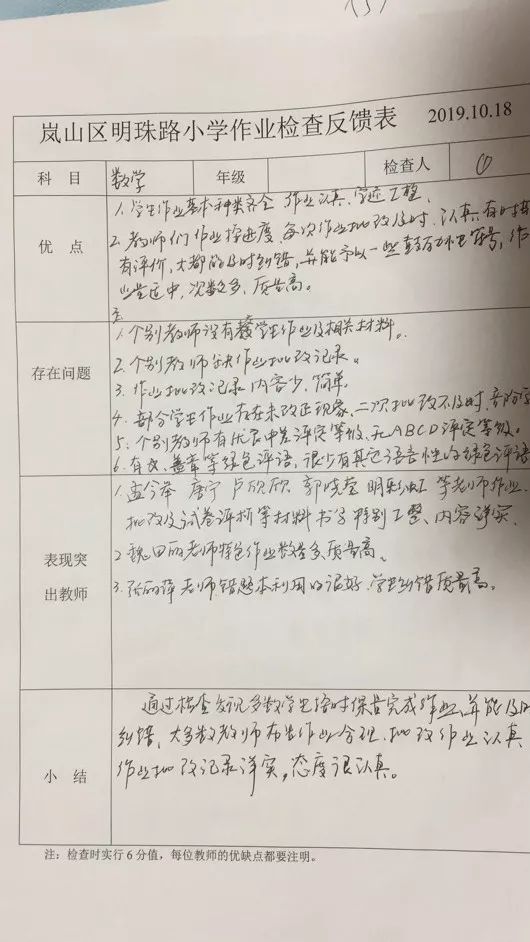 岚山区明珠路小学作业检查反馈表 2019.10.18
科 目 数学 年级 检查人 ①
优 点
1. 学生作业基本种类齐全 作业认真、字迹工整.
2. 教师们作业按进度 每次作业批改及时、认真 有时
有评价, 大都能及时纠错, 并能予以一些
适中, 次数多、质量高。
存在问题
1. 个别教师没有 学生作业及相关材料。
2. 个别教师缺作业批改记录。
3. 作业批改记录内容少、简单,
4. 部分学生作业存在未改正现象、二次批改不及时、部分
5. 个别教师有优良中差评定等级, 无ABCD评定等级。
6. 有 盖章等绿色评语, 很少有其它语言性的绿色评语
表现突
出教师
1. 唐宁 卢欣欣 郭晓莹 等老师作业
批改及试卷评析等材料书写特别工整、内容详实
2. 老师特色作业数量多、质量高。
3. 老师错题本利用的很好, 学生纠错质量高。
小 结
通过检查发现多数学生 按时保质完成作业, 并能及时
纠错, 大多数教师布置作业合理、批改作业认真
作业批改记录详实, 态度很认真。
注：检查时实行6分值，每位教师的优缺点都要注明。